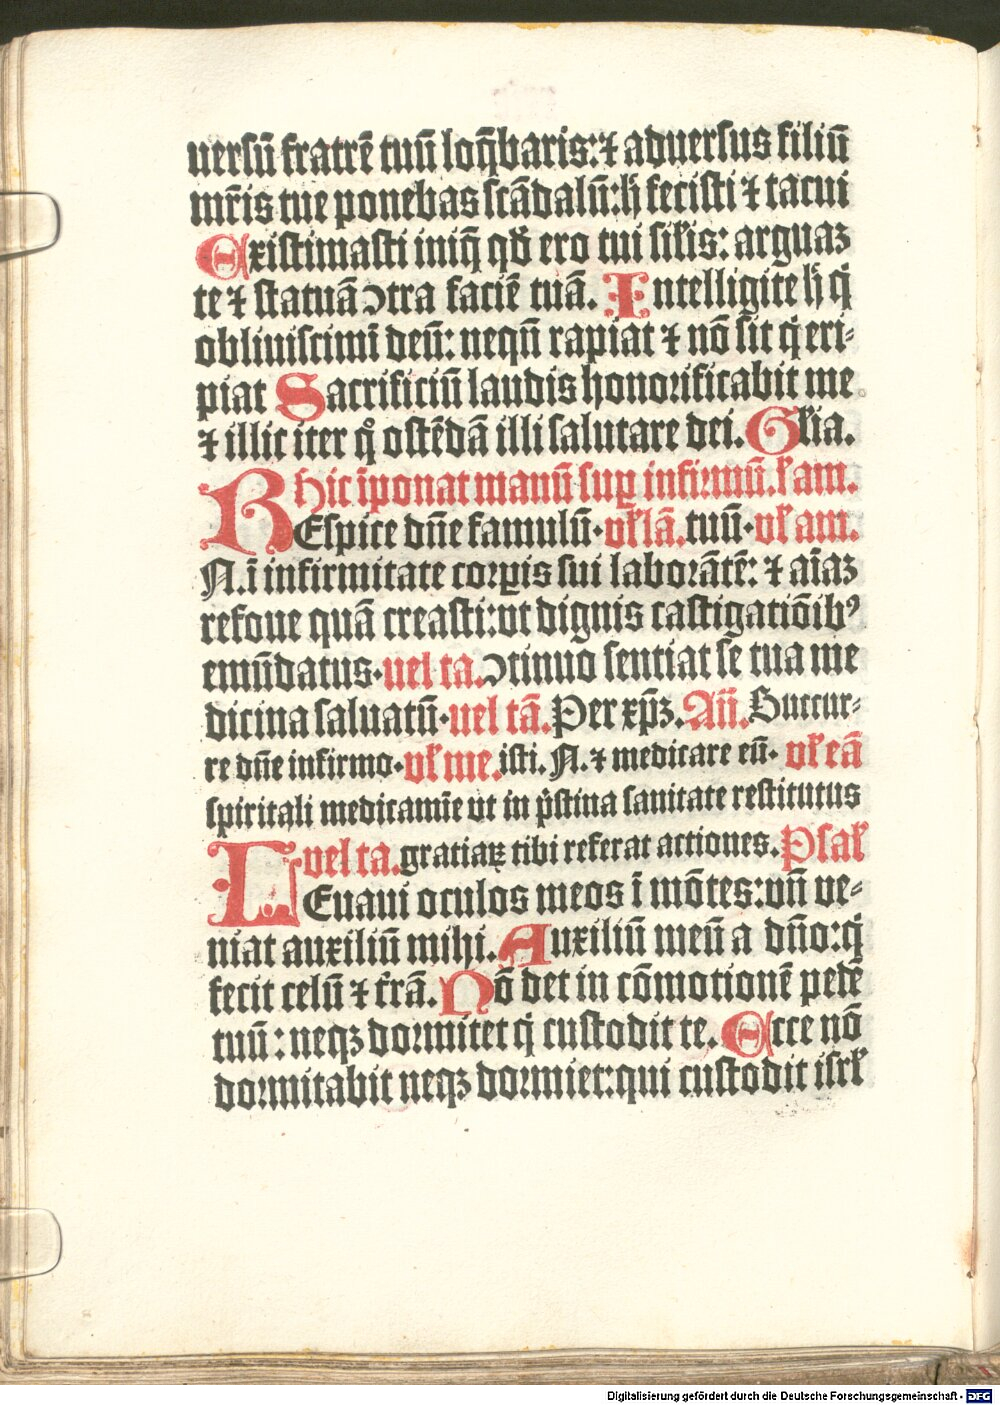 uersū fratrē tuū loq̄baris: ⁊ aduersus filiū
mr̄is tue ponebas scādalū: h̄ fecisti ⁊ tacui
Existimasti iniq̄ qd̄ ero tui sil̄is: arguaꝫ
te ⁊ statuā ↄtra faciē tuā. Intelligite h̄ q̇
obliuiscimī deū: neqn̄ rapiat ⁊ nō sit q̇ eri-
piat Sacrificiū laudis honorificabit me
⁊ illic iter qͦ ostēdā illi salutare dei. Gl̄ia.
hic īponat manū suꝑ infirmū. l̄ am.
REspice dn̄e famulū· vl̄ lā. tuū· vl̄ am.
N. ī infirmitate corꝑis sui laborātē: ⁊ aīaꝫ
refoue quā creasti: ut dignis castigatiōibꝰ
emūdatus· uel ta. ↄtinuo sentiat se tua me
dicina saluatū· uel tā. Per xp̄ꝫ. Añ. Succur-
re dn̄e infirmo· vl̄ me. isti. N. ⁊ medicare eū· vl̄ eā
spiritali medicamīe ut in pͥstina sanitate restitutus
uel ta. gratiaꝝ tibi referat actiones. Psal̄
LEuaui oculos meos ī mōtes: vn̄ ue-
niat auxiliū mihi. Auxiliū meū a dn̄o: q̇
fecit celū ⁊ t̄rā. Nō det in cōmotionē pedē
tuū: neqꝫ dormitet q̇ custodit te. Ecce nō
dormitabit neqꝫ dormiet: qui custodit isrl̄
Digitalisierung gefördert durch die Deutsche Forschungsgemeinschaft - DFG